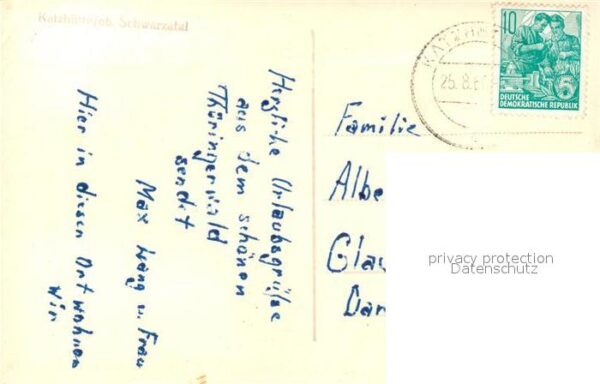 Katzhütte/ob. Schwarzatal
Herzliche Urlaubsgrüße
aus dem schönen
Thüringerwald
sendet
Max Lang u. Frau
Hier in diesen Ort wohnen
wir
KATZHÜTTE
25.8.6
10
5
DEUTSCHE
DEMOKRATISCHE REPUBLIK
Familie
Albe
Glau
Dar
privacy protection
Datenschutz